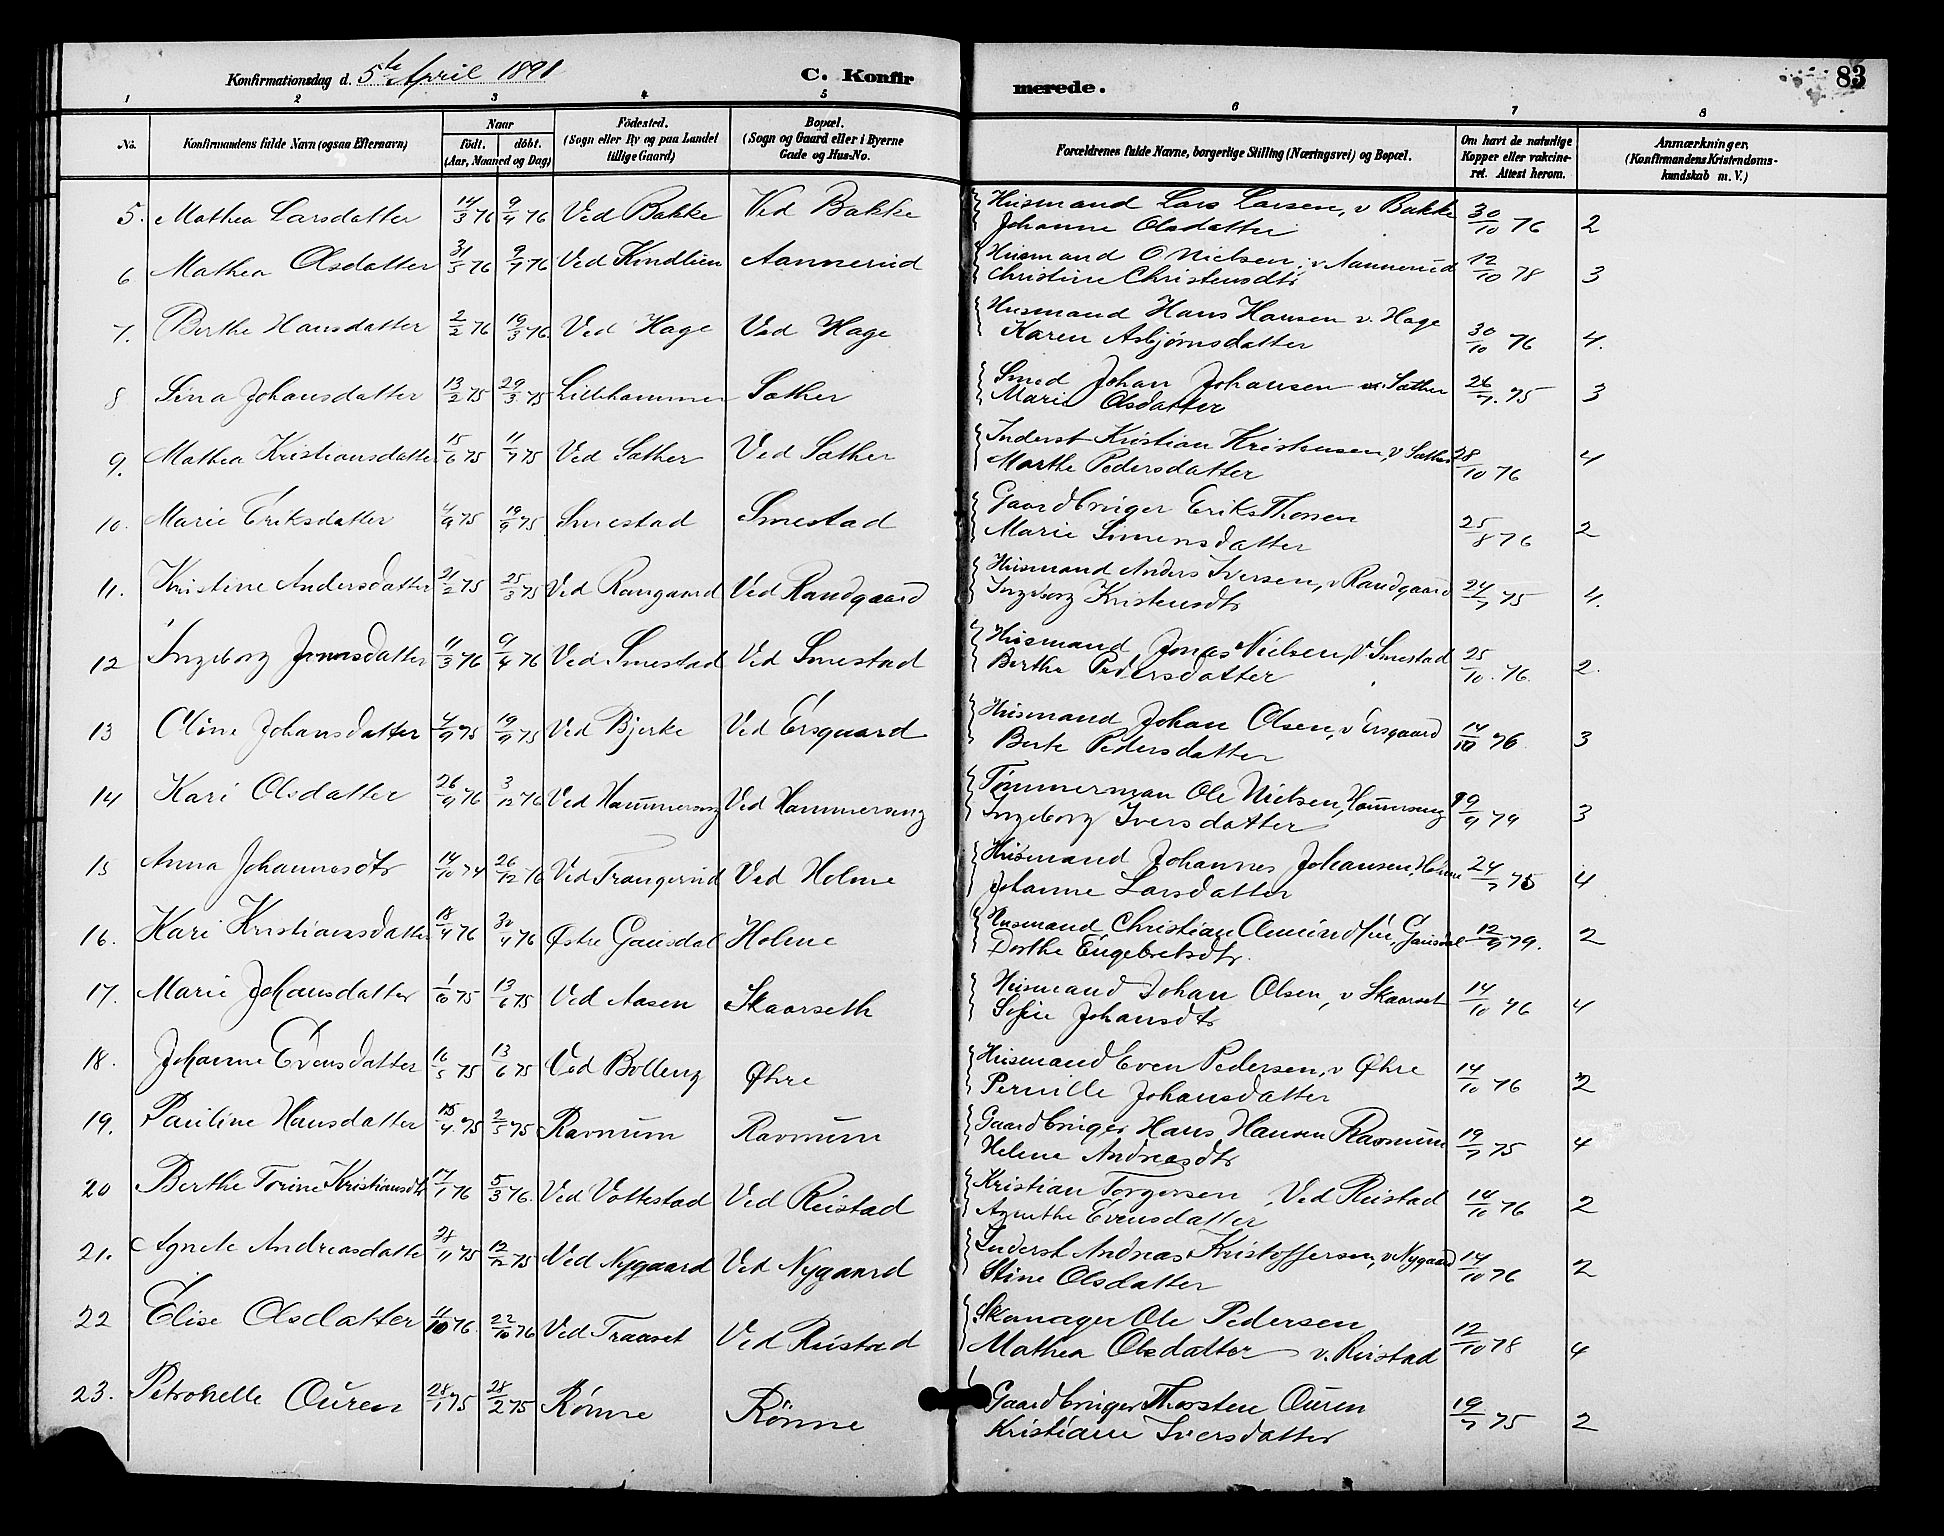 Konfirmationsdag d. 5te April 1891 C. Konfirmerede. 83
1 2 3 4 5 6 7 8
No. Konfirmandens fulde Navn (ogsaa Efternavn) Naar født. døbt. (Aar, Maaned og Dag) Fødested. (Sogn eller By og paa Landet tillige Gaard) Bopæl. (Sogn og Gaard eller i Byerne Gade og Hus-No. Forældrenes fulde Navne, borgerlige Stilling (Næringsvei) og Bopæl. Om havt de naturlige Kopper eller vakcineret. Attest herom. Anmærkninger, (Konfirmandens Kristendomskundskab m. V.)
5. Mathea Larsdatter 14/3 76 9/4 76 Ved Bakke Ved Bakke Husmand Lars Larsen, v Bakke
Johanne Olsdatter 30/10 76 2
6 Mathea Olsdatter 31/5 76 9/7 76 Ved Kindlien Aannerud Husmand O Nielsen, v Aannerud
Christine Christensdtr 12/10 78 3
7. Berthe Hansdatter 2/2 76 19/3 76. Ved Hage Ved Hage Husmand Hans Hansen v. Hage
Karen Asbjørnsdatter 30/10 76 4.
8 Lina Johansdatter 13/2 75 29/3 75 Lillehammer Sæther Smed Johan Johansen v. Sæther
Marie Olsdatter 26/7. 75 3
9. Mathea Kristiansdatter 15/6 75 11/7 75 Ved Sæther Ved Sæther Inderst Kristian Kristensen, v Sæther
Marthe Pedersdatter 28/10 76 4
10. Marie Eriksdatter 4/9 75 19/9 75. Smestad Smestad Gaardbruger Erik Thosen
Marie Simensdatter 25/8 76 2
11. Kristine Andersdatter 21/2 75 25/3 75 Ved Rangaard Ved Randgaard Husmand Anders Iversen, v Randgaard
Ingeborg Kristensdtr 24/7 75 4.
12 Ingeborg Jonasdatter 11/3 76 9/4 76 Ved Smestad Ved Smestad Husmand Jonas Nielsen, v Smestad
Berthe Pedersdatter 25/10. 76. 2.
13 Oline Johansdatter 4/9 75 19/9 75 Ved Bjerke Ved Ersgaard Husmand Johan Olsen, v Ersgaard
Berte Pedersdatter 14/10 76 3
14 Kari Olsdatter 26/9 76 3/12 76 Ved Hammereng Ved Hammereng Tømmerman Ole Nielsen, Hammereng
Ingeborg Iversdatter 19/9 79 3
15 Anna Johannesdtr 14/10 74 26/12 76 Ved Trangerud Ved Holme Husmand Johannes Johansen, Holme
Johanne Larsdatter 24/7 75 4
16. Kari Kristiansdatter 18/4 76 30/4 76 Østre Gausdal Holme Husmand, Christian
Dorthe Engebretsdtr. 12/9 79. 2
17. Marie Johansdatter 75 13/6 75 Ved Aasen Skaarseth Husmand Johan Olsen, v Skaarset
Sofie Johansdtr 14/10 76 4
18. Johanne Evensdatter 16/5 75 13/6 75 Ved Bolleng Øhre Husmand Even Pedersen, v Øhre
Pernille Johansdatter 14/10 76 2
19. Pauline Hansdatter 15/4. 75 2/5 75 Ravnum Ravnum Gaardbruger Hans Hansen Ravnum
Helene Andreasdtr 19/7 75 4
20 Berthe Torine Kristiansdtr 17/1 76 5/3 76. Ved Vottestad Ved Reistad Kristian Torgersen, Ved Reistad
Agnethe Evensdatter 14/10 76 2
21. Agnete Andreasdatter 28/11 75 12/12 75 Ved Nygaard Ved Nygaard Inderst Andreas Kristoffersen, v Nygaard
Stine Olsdatter 14/10 76 2
22 Elise Olsdatter 11/10 76. 22/10 76 Ved Traaset Ved Reistad Skomager Ole Pedersen
Mathea Olsdatter v. Reistad 12/10 78 4
23. Petronelle Ouren 28/1 75 28/2 75 Rønne Rønne Gaardbruger Thorsten Ouren
Kristiane Iversdatter 19/7 75 2